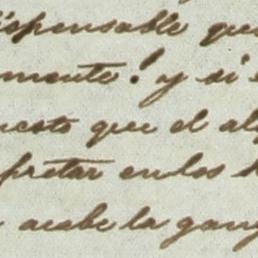 ispensable que
mente! y si
uesto que el al
pretar en los
acabe la gan